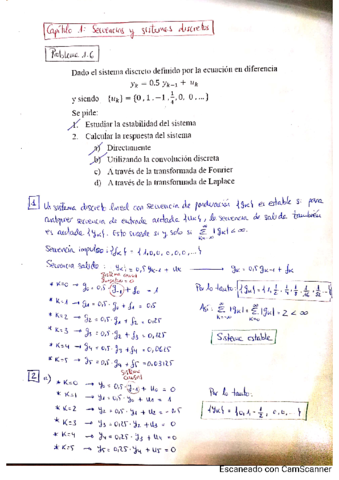 Capítulo 1: Secuencias y sistemas discretos
Problema 1.6
Dado el sistema discreto definido por la ecuación en diferencia
y_k = 0.5 y_{k-1} + u_k
y siendo {u_k} = {0, 1, -1, 1/4, 0, 0, ...}
Se pide:
1. Estudiar la estabilidad del sistema
2. Calcular la respuesta del sistema
a) Directamente
b) Utilizando la convolución discreta
c) A través de la transformada de Fourier
d) A través de la transformada de Laplace
1 Un sistema discreto lineal con secuencia de ponderación {g_k} es estable si para
cualquier secuencia de entrada acotada {u_k}, la secuencia de salida también
es acotada {y_k}. Esto sucede si y solo si Σ |g_k| < ∞
Secuencia impulso: {δ_k} = {1,0,0,0,0,...}
Secuencia salida: y_k = 0,5 y_{k-1} + u_k → g_k = 0,5 g_{k-1} + δ_k
* K=0 → g_0 = 0,5 · g_{-1} + δ_0 = 1
* K=1 → g_1 = 0,5 · g_0 + δ_1 = 0.5
* K=2 → g_2 = 0,5 · g_1 + δ_2 = 0,25
* K=3 → g_3 = 0,5 · g_2 + δ_3 = 0,125
* K=4 → g_4 = 0,5 · g_3 + δ_4 = 0,0625
* K=5 → g_5 = 0,5 · g_4 + δ_5 = 0,03125
Por lo tanto:
Así: Σ |g_k| = Σ |g_k| = 2 < ∞
Sistema estable
2 a) * K=0 → y_0 = 0.5 · y_{-1} + u_0 = 0
* K=1 → y_1 = 0,5 · y_0 + u_1 = 1
* K=2 → y_2 = 0,5 · y_1 + u_2 = -0.5
* K=3 → y_3 = 0,25 + u_3 = 0
* K=4 → u_4 = 0
* K=5 → u_5 = 0
Por lo tanto:
{y_k} = {0, 1, -1/2, 0, 0, ...}
Escaneado con CamScanner